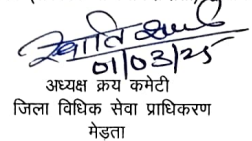 स्वाति शर्मा
01/03/25
अध्यक्ष क्रय कमेटी
जिला विधिक सेवा प्राधिकरण
मेड़ता